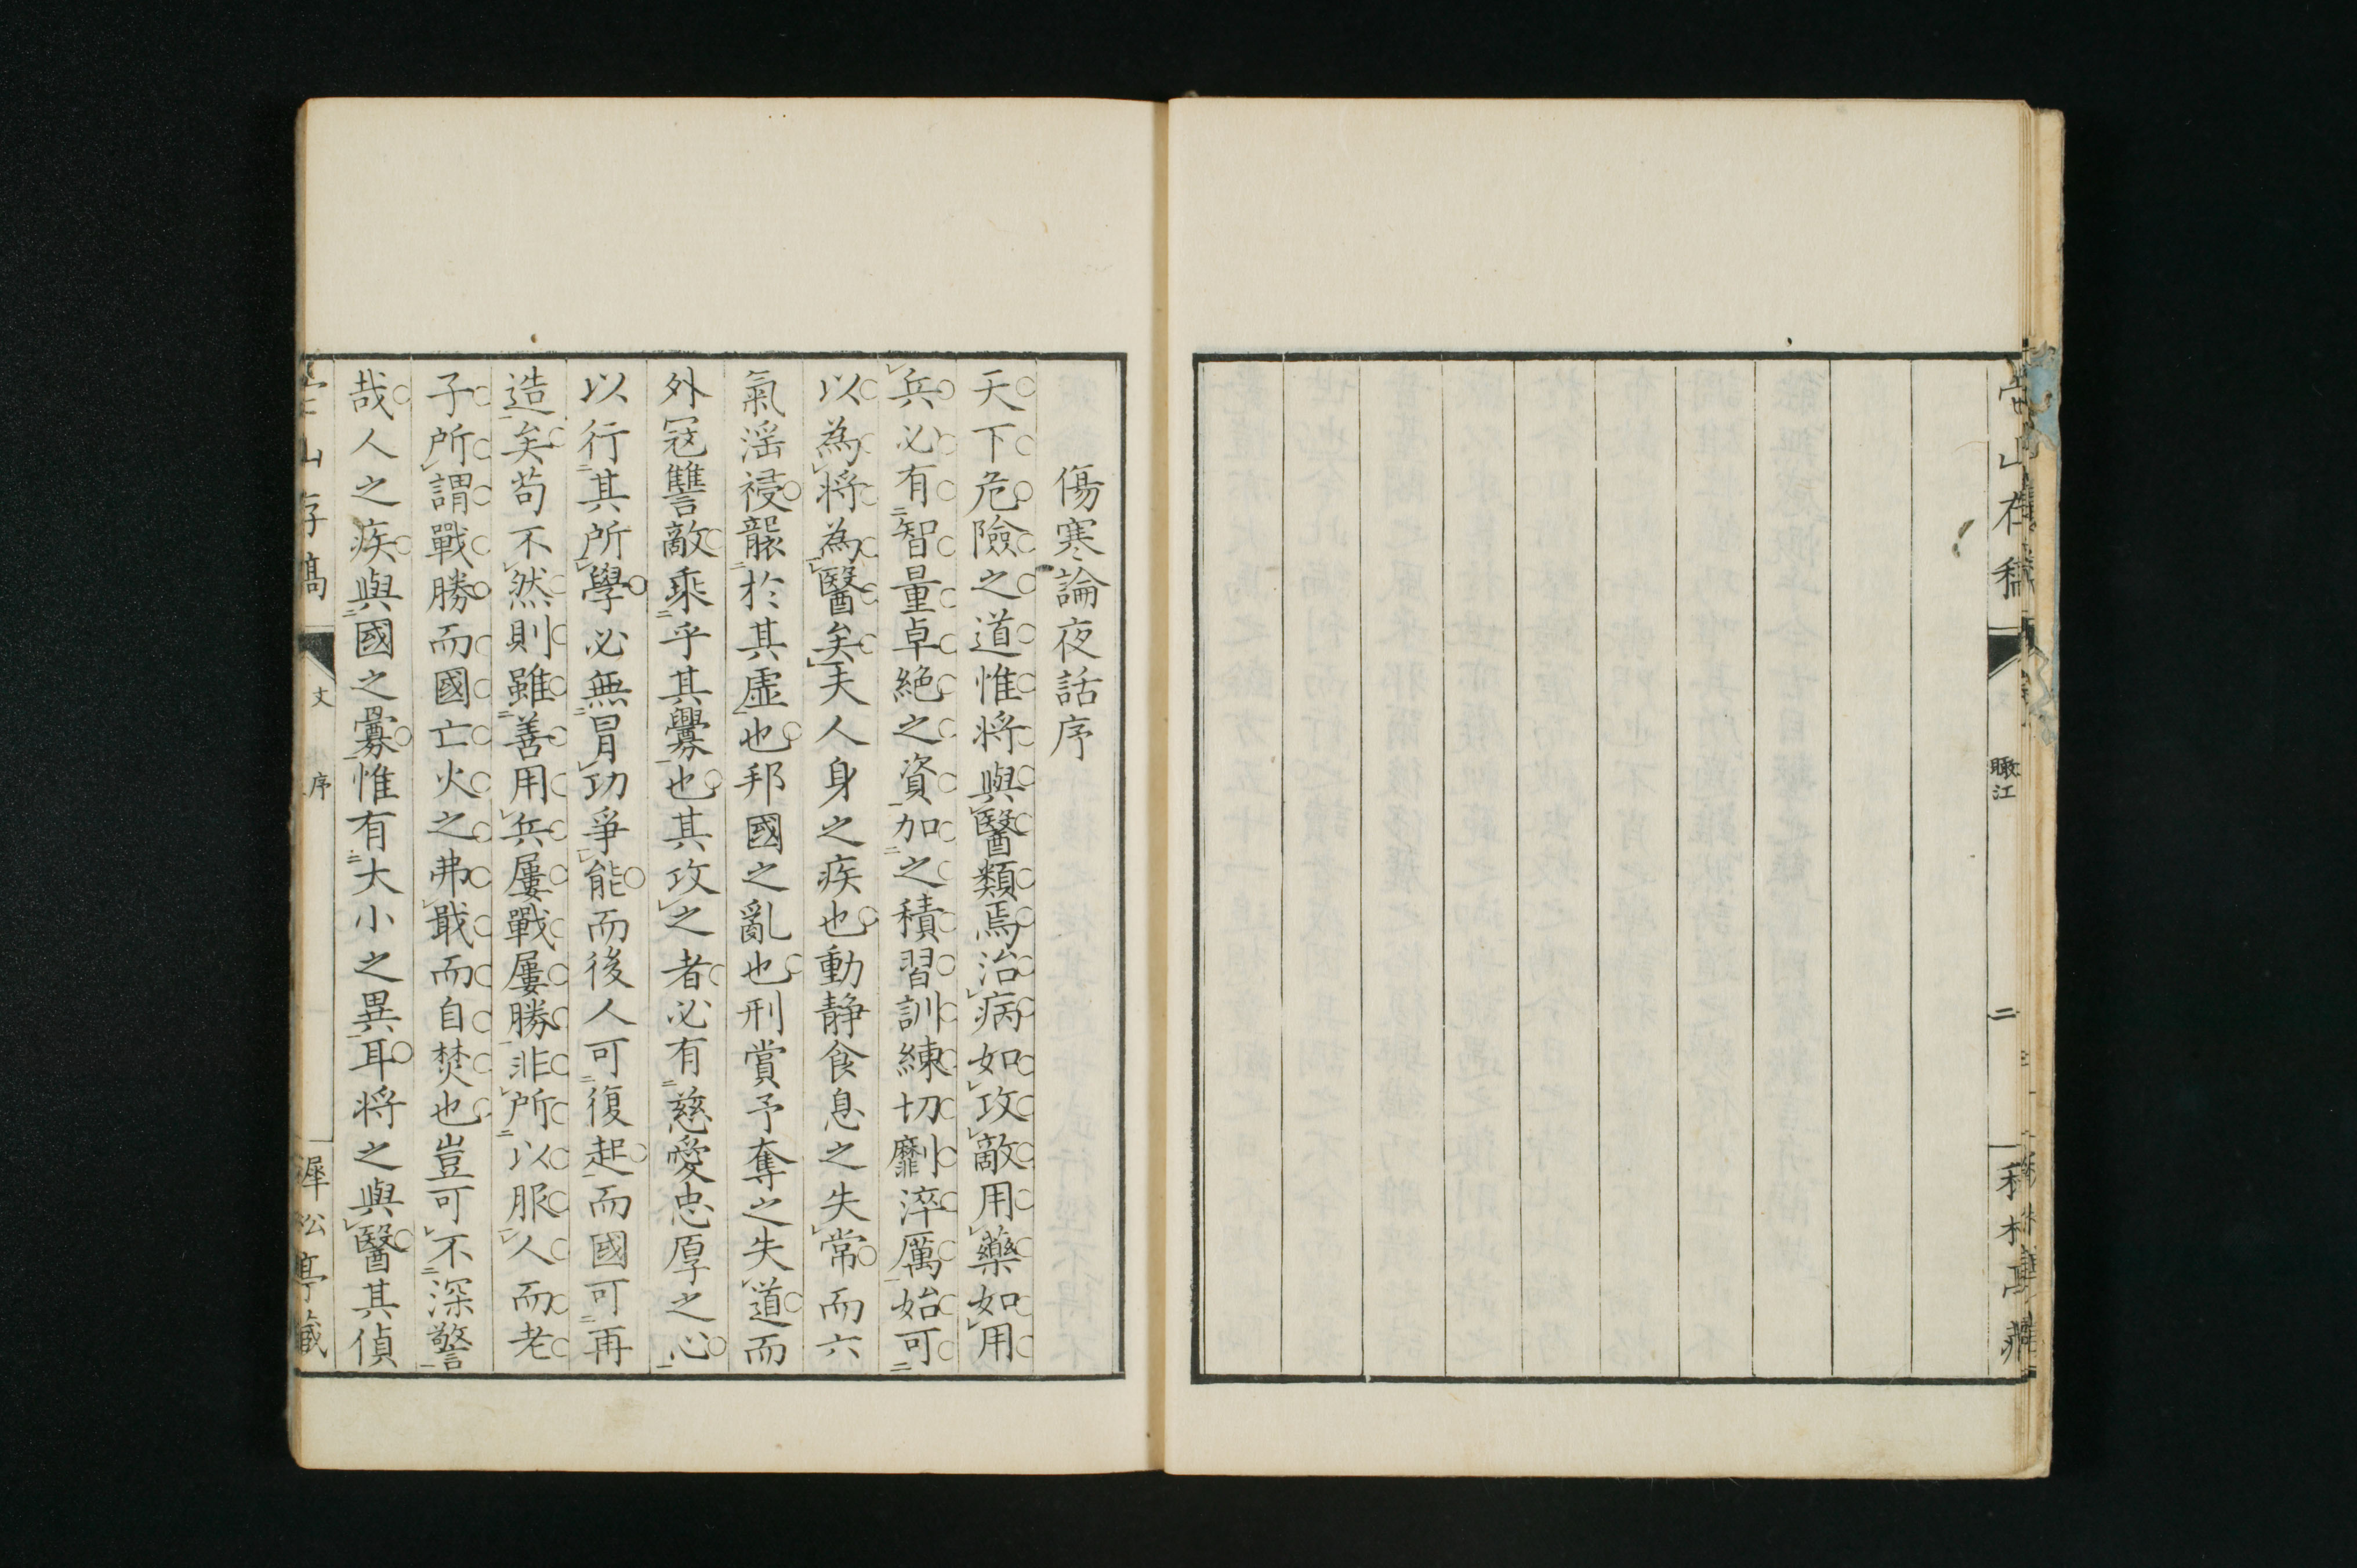 瞰江
二
傷寒論夜話序
天下危險之道惟將與醫類焉治病如攻敵用藥如用
兵必有智量卓絶之資加之積習訓練切劘淬厲始可
以為將為醫矣夫人身之疾也動静食息之失常而六
氣滛祲襲於其虛也邦國之亂也刑賞予奪之失道而
外冦讐敵乘乎其釁也其攻之者必有慈愛忠厚之心
以行其所學必無冐功爭能而後人可復起而國可再
造矣苟不然則雖善用兵屢戰屢勝非所以服人而老
子所謂戰勝而國亡火之弗戢而自焚也豈可不深警
哉人之疾與國之釁惟有大小之異耳將之與醫其偵
山存稿
文
序
松亭藏